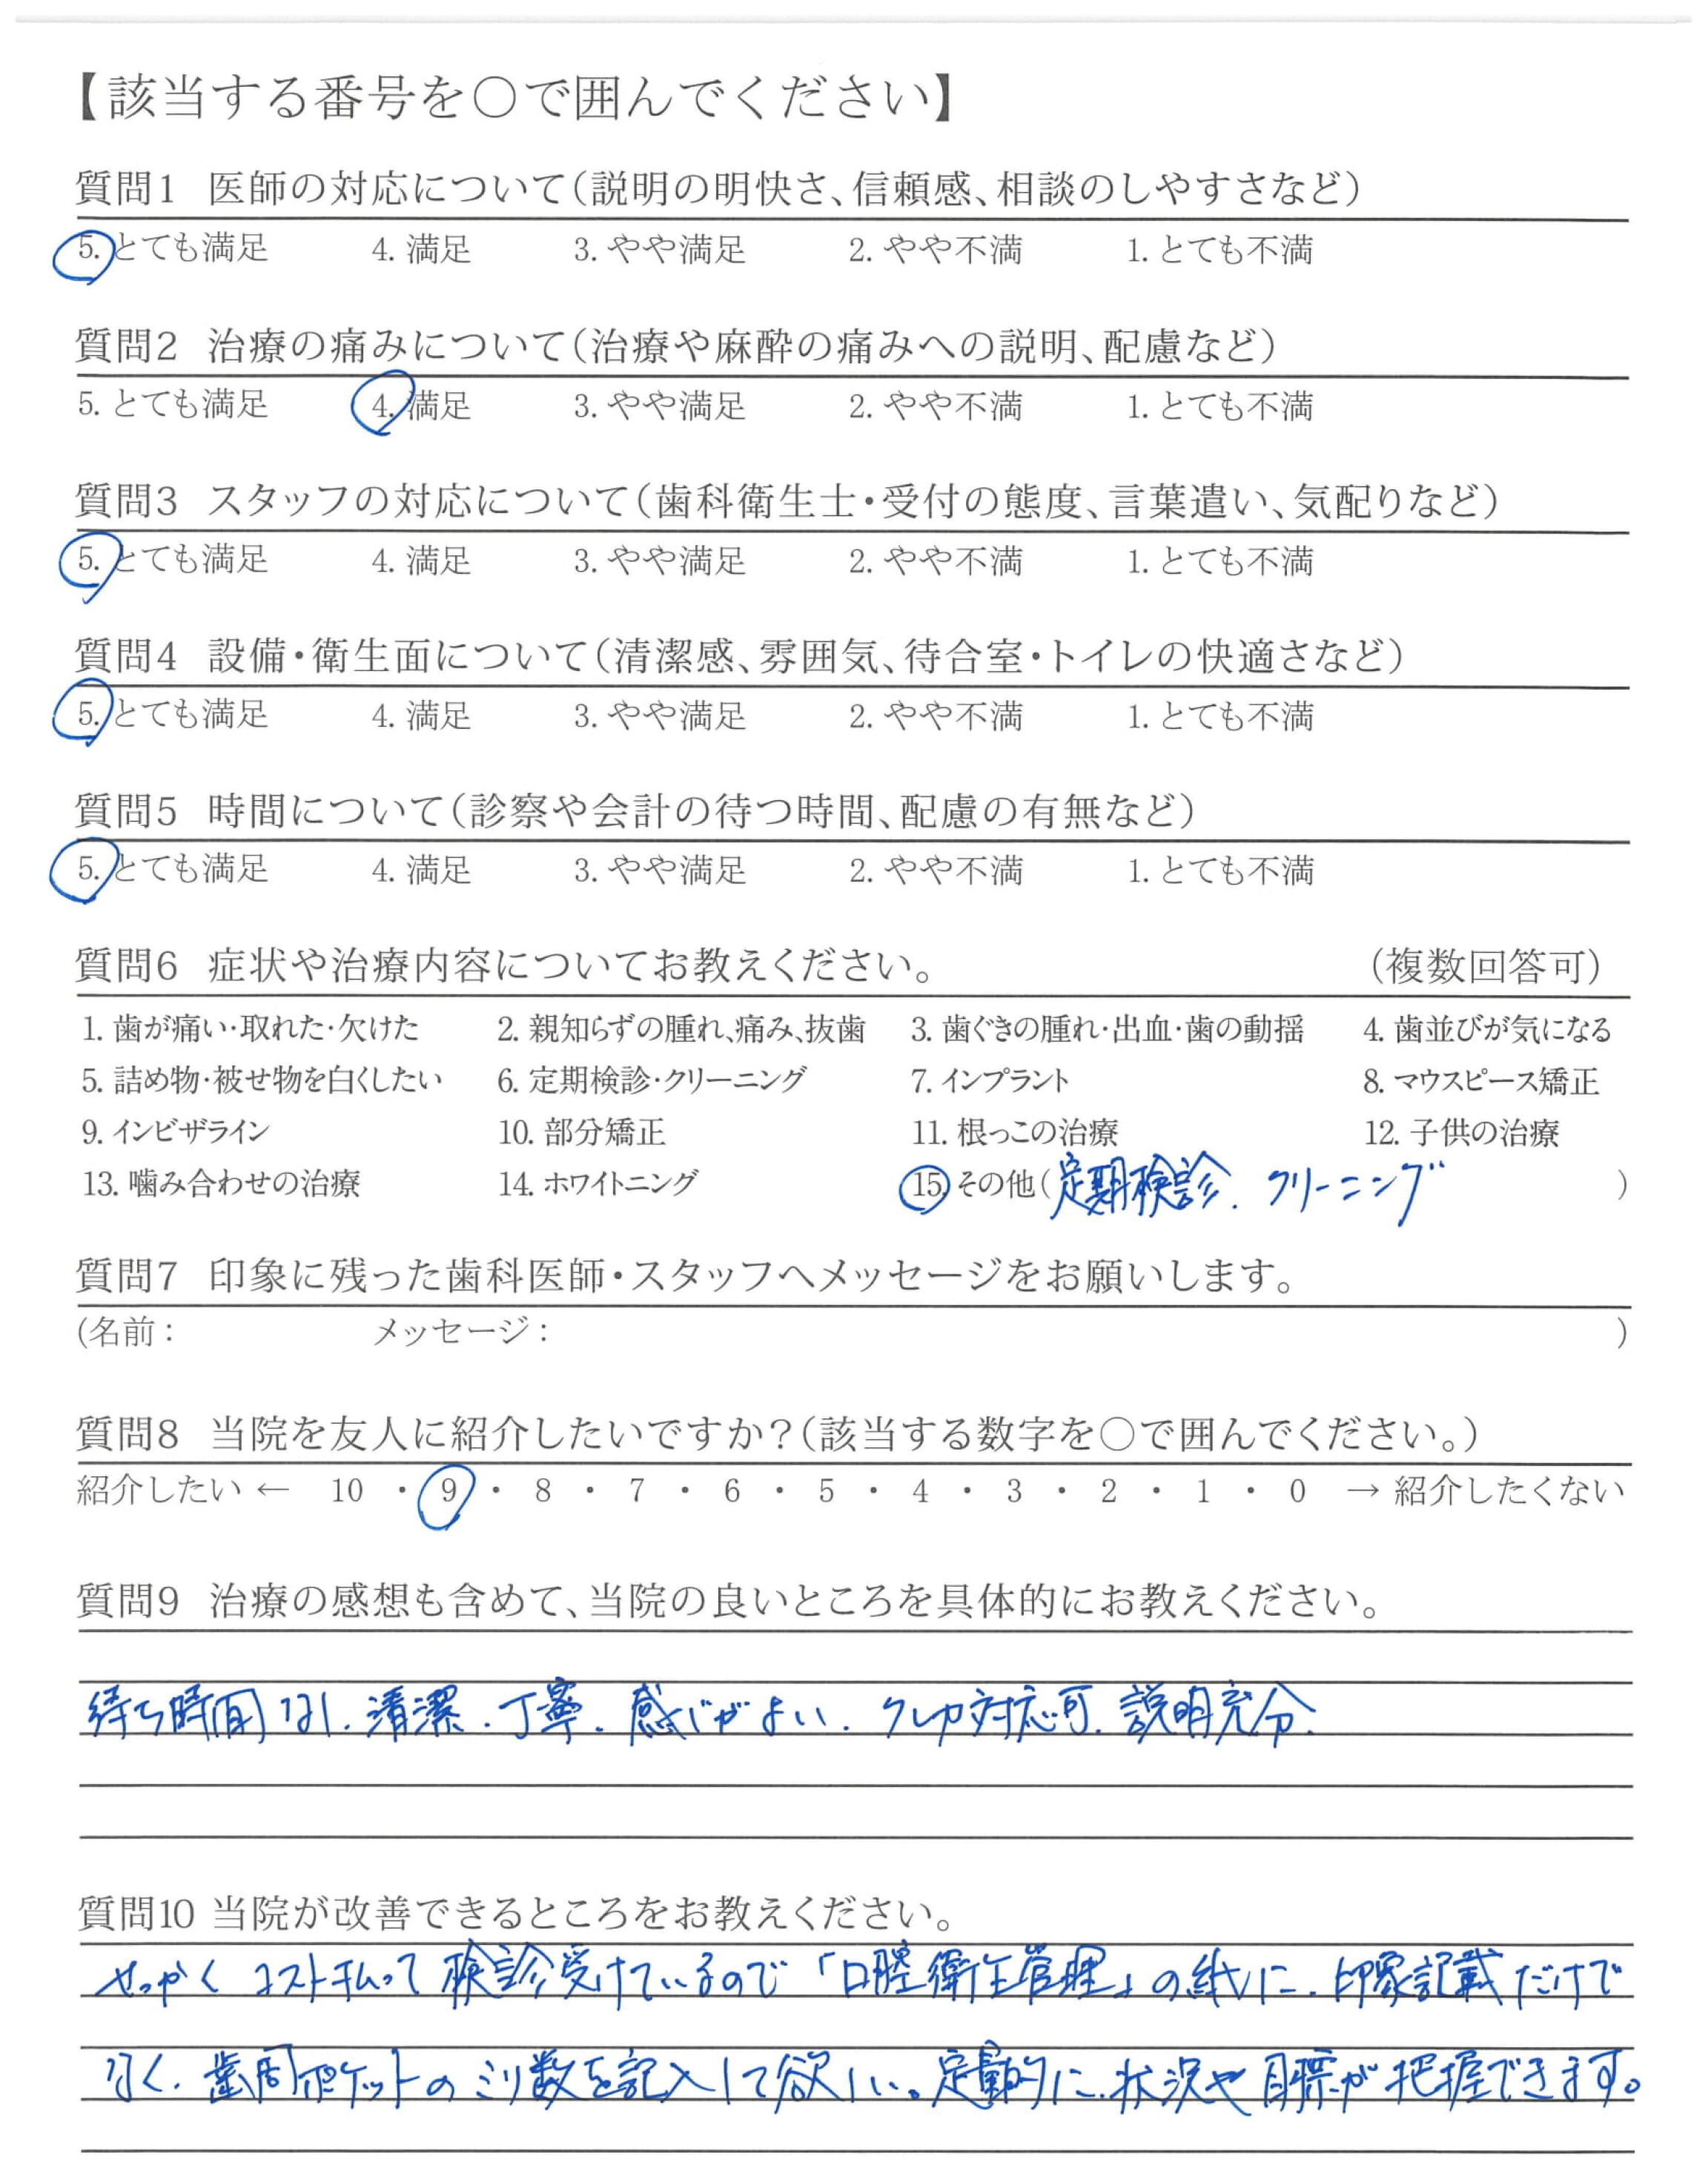 【該当する番号を○で囲んでください】
質問1 医師の対応について(説明の明快さ、信頼感、相談のしやすさなど)
5. とても満足 4. 満足 3. やや満足 2. やや不満 1. とても不満
質問2 治療の痛みについて(治療や麻酔の痛みへの説明、配慮など)
5. とても満足 4. 満足 3. やや満足 2. やや不満 1. とても不満
質問3 スタッフの対応について(歯科衛生士・受付の態度、言葉遣い、気配りなど)
5. とても満足 4. 満足 3. やや満足 2. やや不満 1. とても不満
質問4 設備・衛生面について(清潔感、雰囲気、待合室・トイレの快適さなど)
5. とても満足 4. 満足 3. やや満足 2. やや不満 1. とても不満
質問5 時間について(診察や会計の待つ時間、配慮の有無など)
5. とても満足 4. 満足 3. やや満足 2. やや不満 1. とても不満
質問6 症状や治療内容についてお教えください。 (複数回答可)
1. 歯が痛い・取れた・欠けた 2. 親知らずの腫れ、痛み、抜歯 3. 歯ぐきの腫れ・出血・歯の動揺 4. 歯並びが気になる
5. 詰め物・被せ物を白くしたい 6. 定期検診・クリーニング 7. インプラント 8. マウスピース矯正
9. インビザライン 10. 部分矯正 11. 根っこの治療 12. 子供の治療
13. 噛み合わせの治療 14. ホワイトニング 15. その他(定期検診. クリーニング )
質問7 印象に残った歯科医師・スタッフへメッセージをお願いします。
(名前： メッセージ： )
質問8 当院を友人に紹介したいですか？(該当する数字を○で囲んでください。)
紹介したい ← 10 ・ 9 ・ 8 ・ 7 ・ 6 ・ 5 ・ 4 ・ 3 ・ 2 ・ 1 ・ 0 → 紹介したくない
質問9 治療の感想も含めて、当院の良いところを具体的にお教えください。
待ち時間なし. 清潔. 丁寧. 感じがよい. クレカ対応可. 説明充分.
質問10 当院が改善できるところをお教えください。
せっかくコスト払って検診受けているので「口腔衛生管理」の紙に. 印象記載だけで
なく. 歯周ポケットのミリ数を記入して欲しい。定量的に. 状況や目標が把握できます。